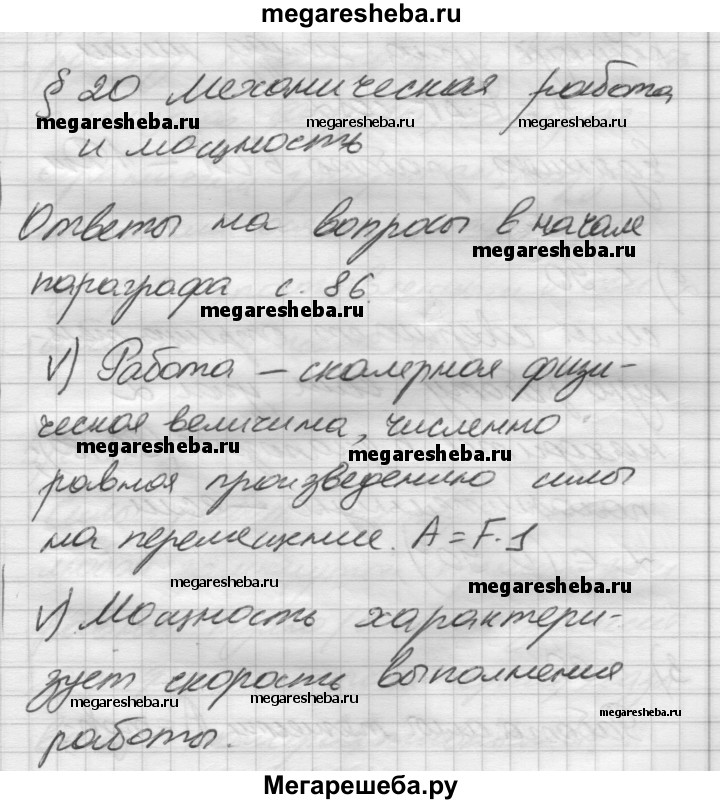 megaresheba.ru
§ 20 Механическая работа
megaresheba.ru megaresheba.ru megaresheba.ru
и мощность
Ответы на вопросы в начале
megaresheba.ru
параграфа с. 86.
megaresheba.ru
V) Работа – скалерная физи-
ческая величина, численно
megaresheba.ru megaresheba.ru
равная произведению силы
на перемещение. A = F · 1
megaresheba.ru megaresheba.ru
V) Мощность характери-
зует скорость выполнения
megaresheba.ru megaresheba.ru megaresheba.ru
работы.
Мегарешеба.ру